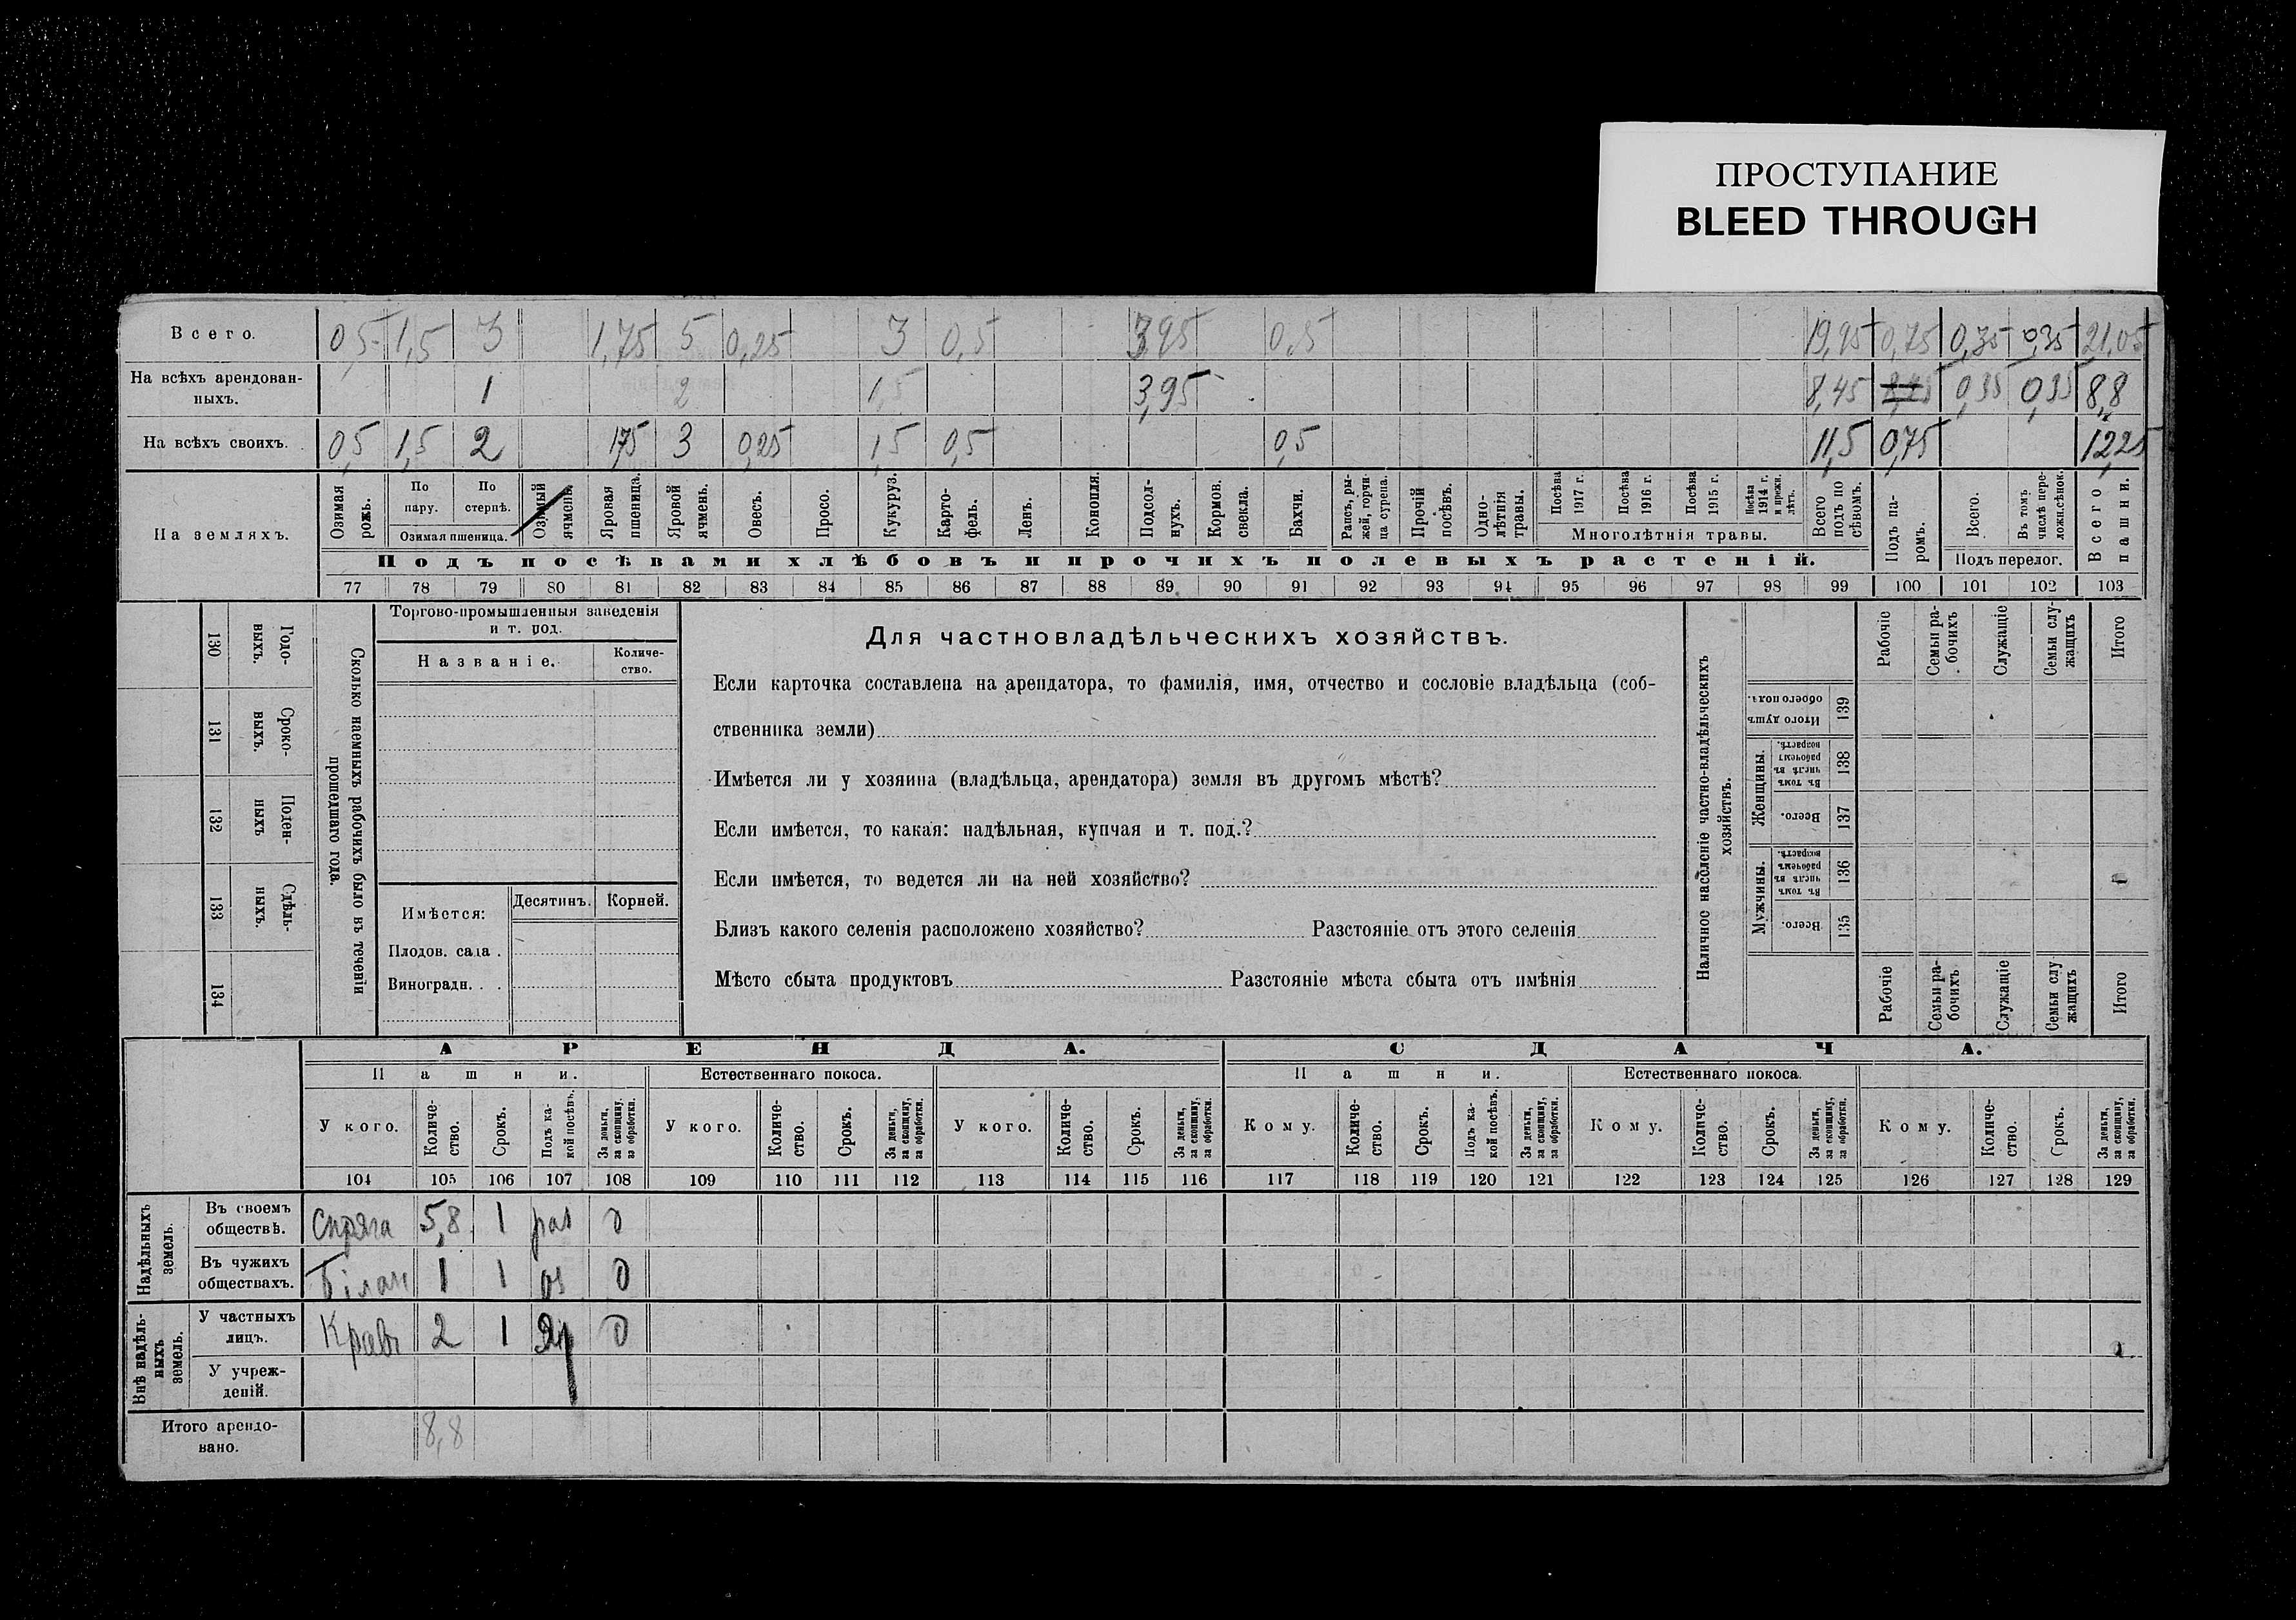 ПРОСТУПАНИЕ
BLEED THROUGH
Всего. 0,5 1,5 3 1,75 5 0,25 3 0,5 3,95 0,5 19,95 0,75 0,35 0,35 21,05
На всѣхъ арендован-
ныхъ. 1 2 1,5 3,95 8,45 0,35 0,35 8,8
На всѣхъ своихъ. 0,5 1,5 2 1,75 3 0,25 1,5 0,5 0,5 11,5 0,75 12,25
На земляхъ.
Озимая рожь.
По пару.
По стернѣ.
Озимая пшеница.
Озимый ячмень.
Яровая пшеница.
Яровой ячмень.
Овесъ.
Просо.
Кукуруз.
Карто-
фель.
Ленъ.
Конопля.
Подсол-
нухъ.
Кормов.
свекла.
Бахчи.
Рапсъ, ры-
жей, горчи-
ца сурепа.
Прочій
посѣвъ.
Одно-
лѣтнія
травы.
Посѣва
1917 г.
Посѣва
1916 г.
Посѣва
1915 г.
Посѣва
1914 г.
и прежн.
лѣтъ.
Многолѣтнія травы.
Всего
подъ по
сѣвомъ.
Подъ па-
ромъ.
Всего.
Въ томъ
числѣ пере-
ложн.сѣнок.
Подъ перелог.
Всего
пашни.
Подъ посѣвами хлѣбовъ и прочихъ полевыхъ растеній.
77 78 79 80 81 82 83 84 85 86 87 88 89 90 91 92 93 94 95 96 97 98 99 100 101 102 103
130 131 132 133 134
Годо-
выхъ.
Сроко-
выхъ.
Поден-
ныхъ
Сдѣль-
ныхъ.
Сколько наемныхъ рабочихъ было въ теченіи
прошедшаго года.
Торгово-промышленныя заведенія
и т. под.
Названіе.
Количе-
ство.
Имѣется:
Десятинъ. Корней.
Плодов. сада .
Виноградн. . .
Для частновладѣльческихъ хозяйствъ.
Если карточка составлена на арендатора, то фамилія, имя, отчество и сословіе владѣльца (соб-
ственника земли)
Имѣется ли у хозяина (владѣльца, арендатора) земля въ другомъ мѣстѣ?
Если имѣется, то какая: надѣльная, купчая и т. под.?
Если имѣется, то ведется ли на ней хозяйство?
Близъ какого селенія расположено хозяйство? Разстояніе отъ этого селенія
Мѣсто сбыта продуктовъ Разстояніе мѣста сбыта отъ имѣнія
Наличное населеніе частно-владѣльческихъ
хозяйствъ.
Рабочіе
Семьи ра-
бочихъ
Служащіе
Семьи слу-
жащихъ
Итого
Итого душъ
обоего полъ. 139
Женщины.
Въ томъ
числѣ въ
рабочемъ
возрастѣ. 138
Всего. 137
Мужчины.
Въ томъ
числѣ въ
рабочемъ
возрастѣ. 136
Всего. 135
Рабочіе
Семьи ра-
бочихъ
Служащіе
Семьи слу
жащихъ
Итого
АРЕНДА. СДАЧА.
Пашни. Естественнаго покоса. Пашни. Естественнаго покоса.
У кого.
Количе-
ство.
Срокъ.
Подъ ка-
кой посѣвъ.
За деньги,
за скопщину,
за обработки.
У кого.
Количе-
ство.
Срокъ.
За деньги,
за скопщину,
за обработки.
У кого.
Количе-
ство.
Срокъ.
За деньги,
за скопщину,
за обработки.
Кому.
Количе-
ство.
Срокъ.
Подъ ка-
кой посѣвъ.
За деньги,
за скопщину,
за обработки.
Кому.
Количе-
ство.
Срокъ.
За деньги,
за скопщину,
за обработки.
Кому.
Количе-
ство.
Срокъ.
За деньги,
за скопщину,
за обработки.
104 105 106 107 108 109 110 111 112 113 114 115 116 117 118 119 120 121 122 123 124 125 126 127 128 129
Надѣльныхъ
земель.
Въ своемъ
обществѣ. 5,8 1
Въ чужихъ
обществахъ. 1 1
Внѣ надѣль-
ныхъ
земель.
У частныхъ
лицъ. 2 1
У учреж-
деній.
Итого арендо-
вано. 8,8